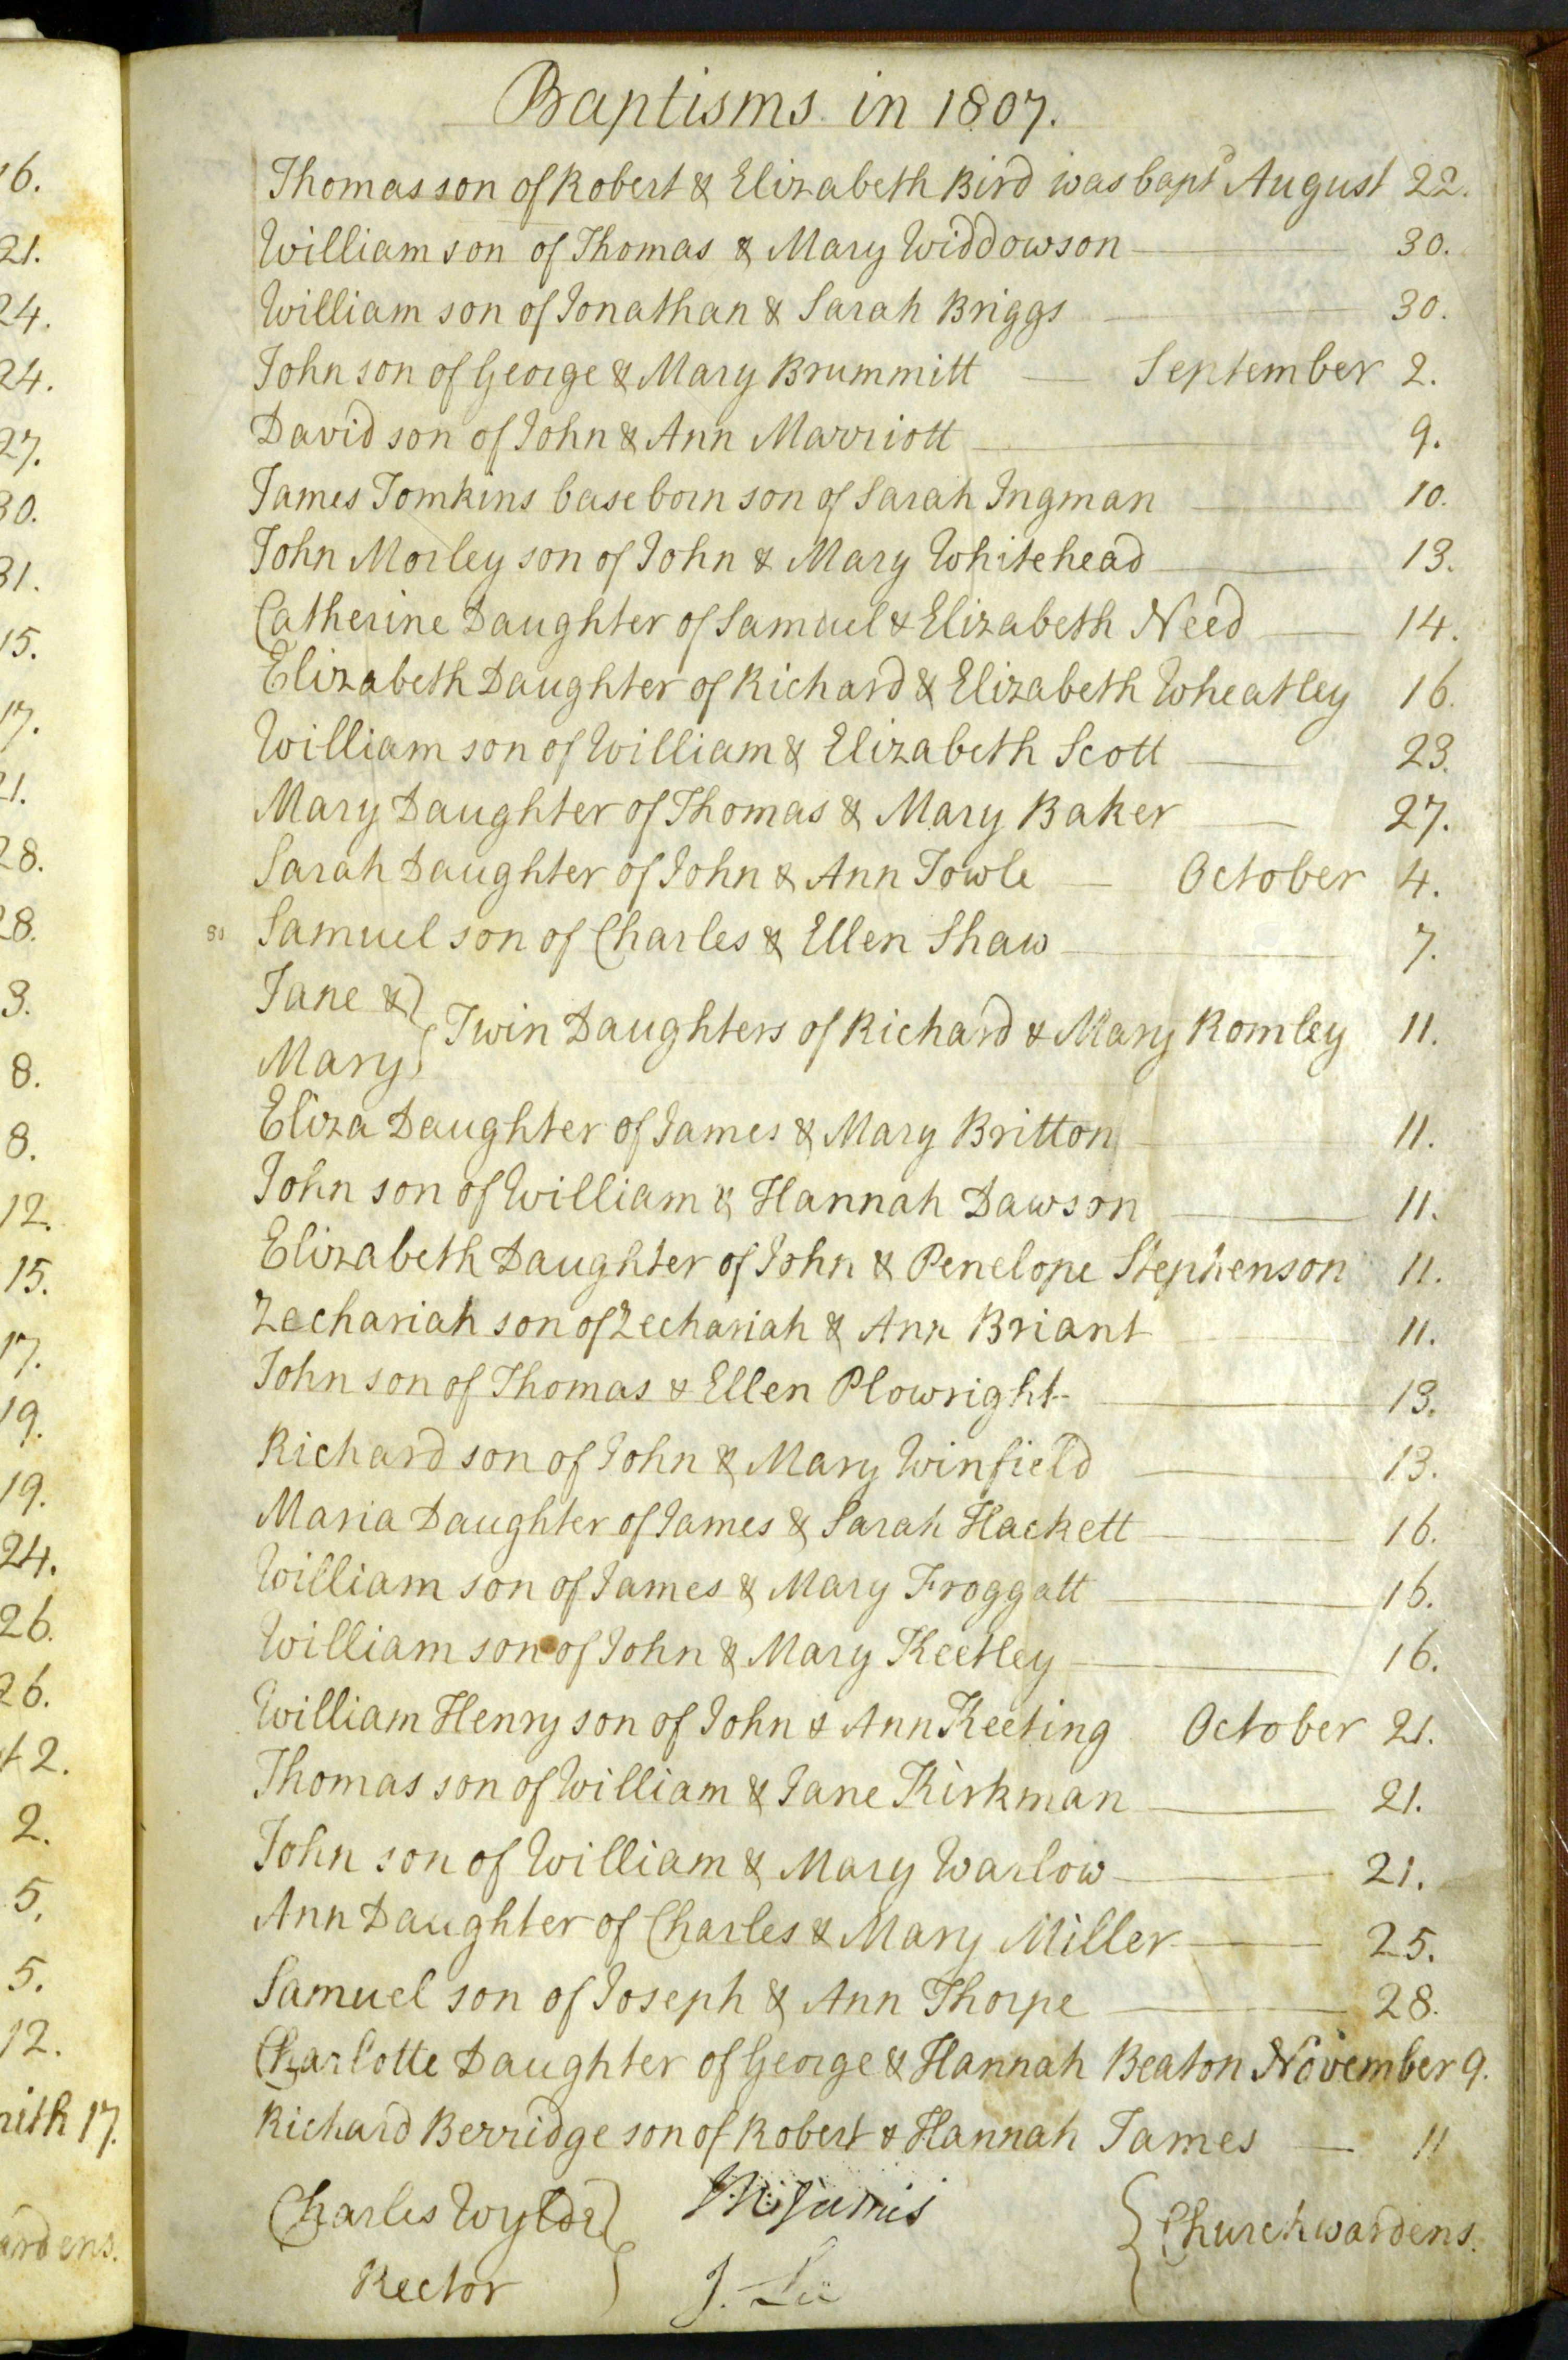 16.
21.
24.
24.
27.
30.
31.
15.
17.
21.
28.
28.
3.
8.
8.
12.
15.
17.
19.
19.
24.
26.
26.
2.
2.
5.
5.
12.
17.
Baptisms in 1807.
Thomas son of Robert & Elizabeth Bird was bapt^d August 22.
William son of Thomas & Mary Widdowson — 30.
William son of Jonathan & Sarah Briggs — 30.
John son of George & Mary Brummitt — September 2.
David son of John & Ann Marriott — 9.
James Tomkins base born son of Sarah Ingman — 10.
John Morley son of John & Mary Whitehead — 13.
Catherine Daughter of Samuel & Elizabeth Need — 14.
Elizabeth Daughter of Richard & Elizabeth Wheatley 16.
William son of William & Elizabeth Scott — 23.
Mary Daughter of Thomas & Mary Baker — 27.
Sarah Daughter of John & Ann Towle — October 4.
Samuel son of Charles & Ellen Shaw — 7.
Jane &
Mary } Twin Daughters of Richard & Mary Romley 11.
Eliza Daughter of James & Mary Britton — 11.
John son of William & Hannah Dawson — 11.
Elizabeth Daughter of John & Penelope Stephenson 11.
Zechariah son of Zechariah & Ann Briant — 11.
John son of Thomas & Ellen Plowright — 13.
Richard son of John & Mary Winfield — 13.
Maria Daughter of James & Sarah Hackett — 16.
William son of James & Mary Froggatt — 16.
William son of John & Mary Keetley — 16.
William Henry son of John & Ann Keeting October 21.
Thomas son of William & Jane Kirkman — 21.
John son of William & Mary Warlow — 21.
Ann Daughter of Charles & Mary Miller — 25.
Samuel son of Joseph & Ann Thorpe — 28.
Charlotte Daughter of George & Hannah Beaton November 9.
Richard Berridge son of Robert & Hannah James — 11
Charles Wylde }
Rector
J. Lee
{ Churchwardens.